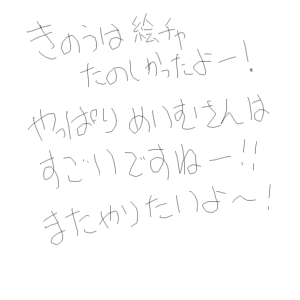 きのうは絵チャ
たのしかったよー!
やっぱりめいむさんは
すごいですねー!!
またやりたいよ〜!